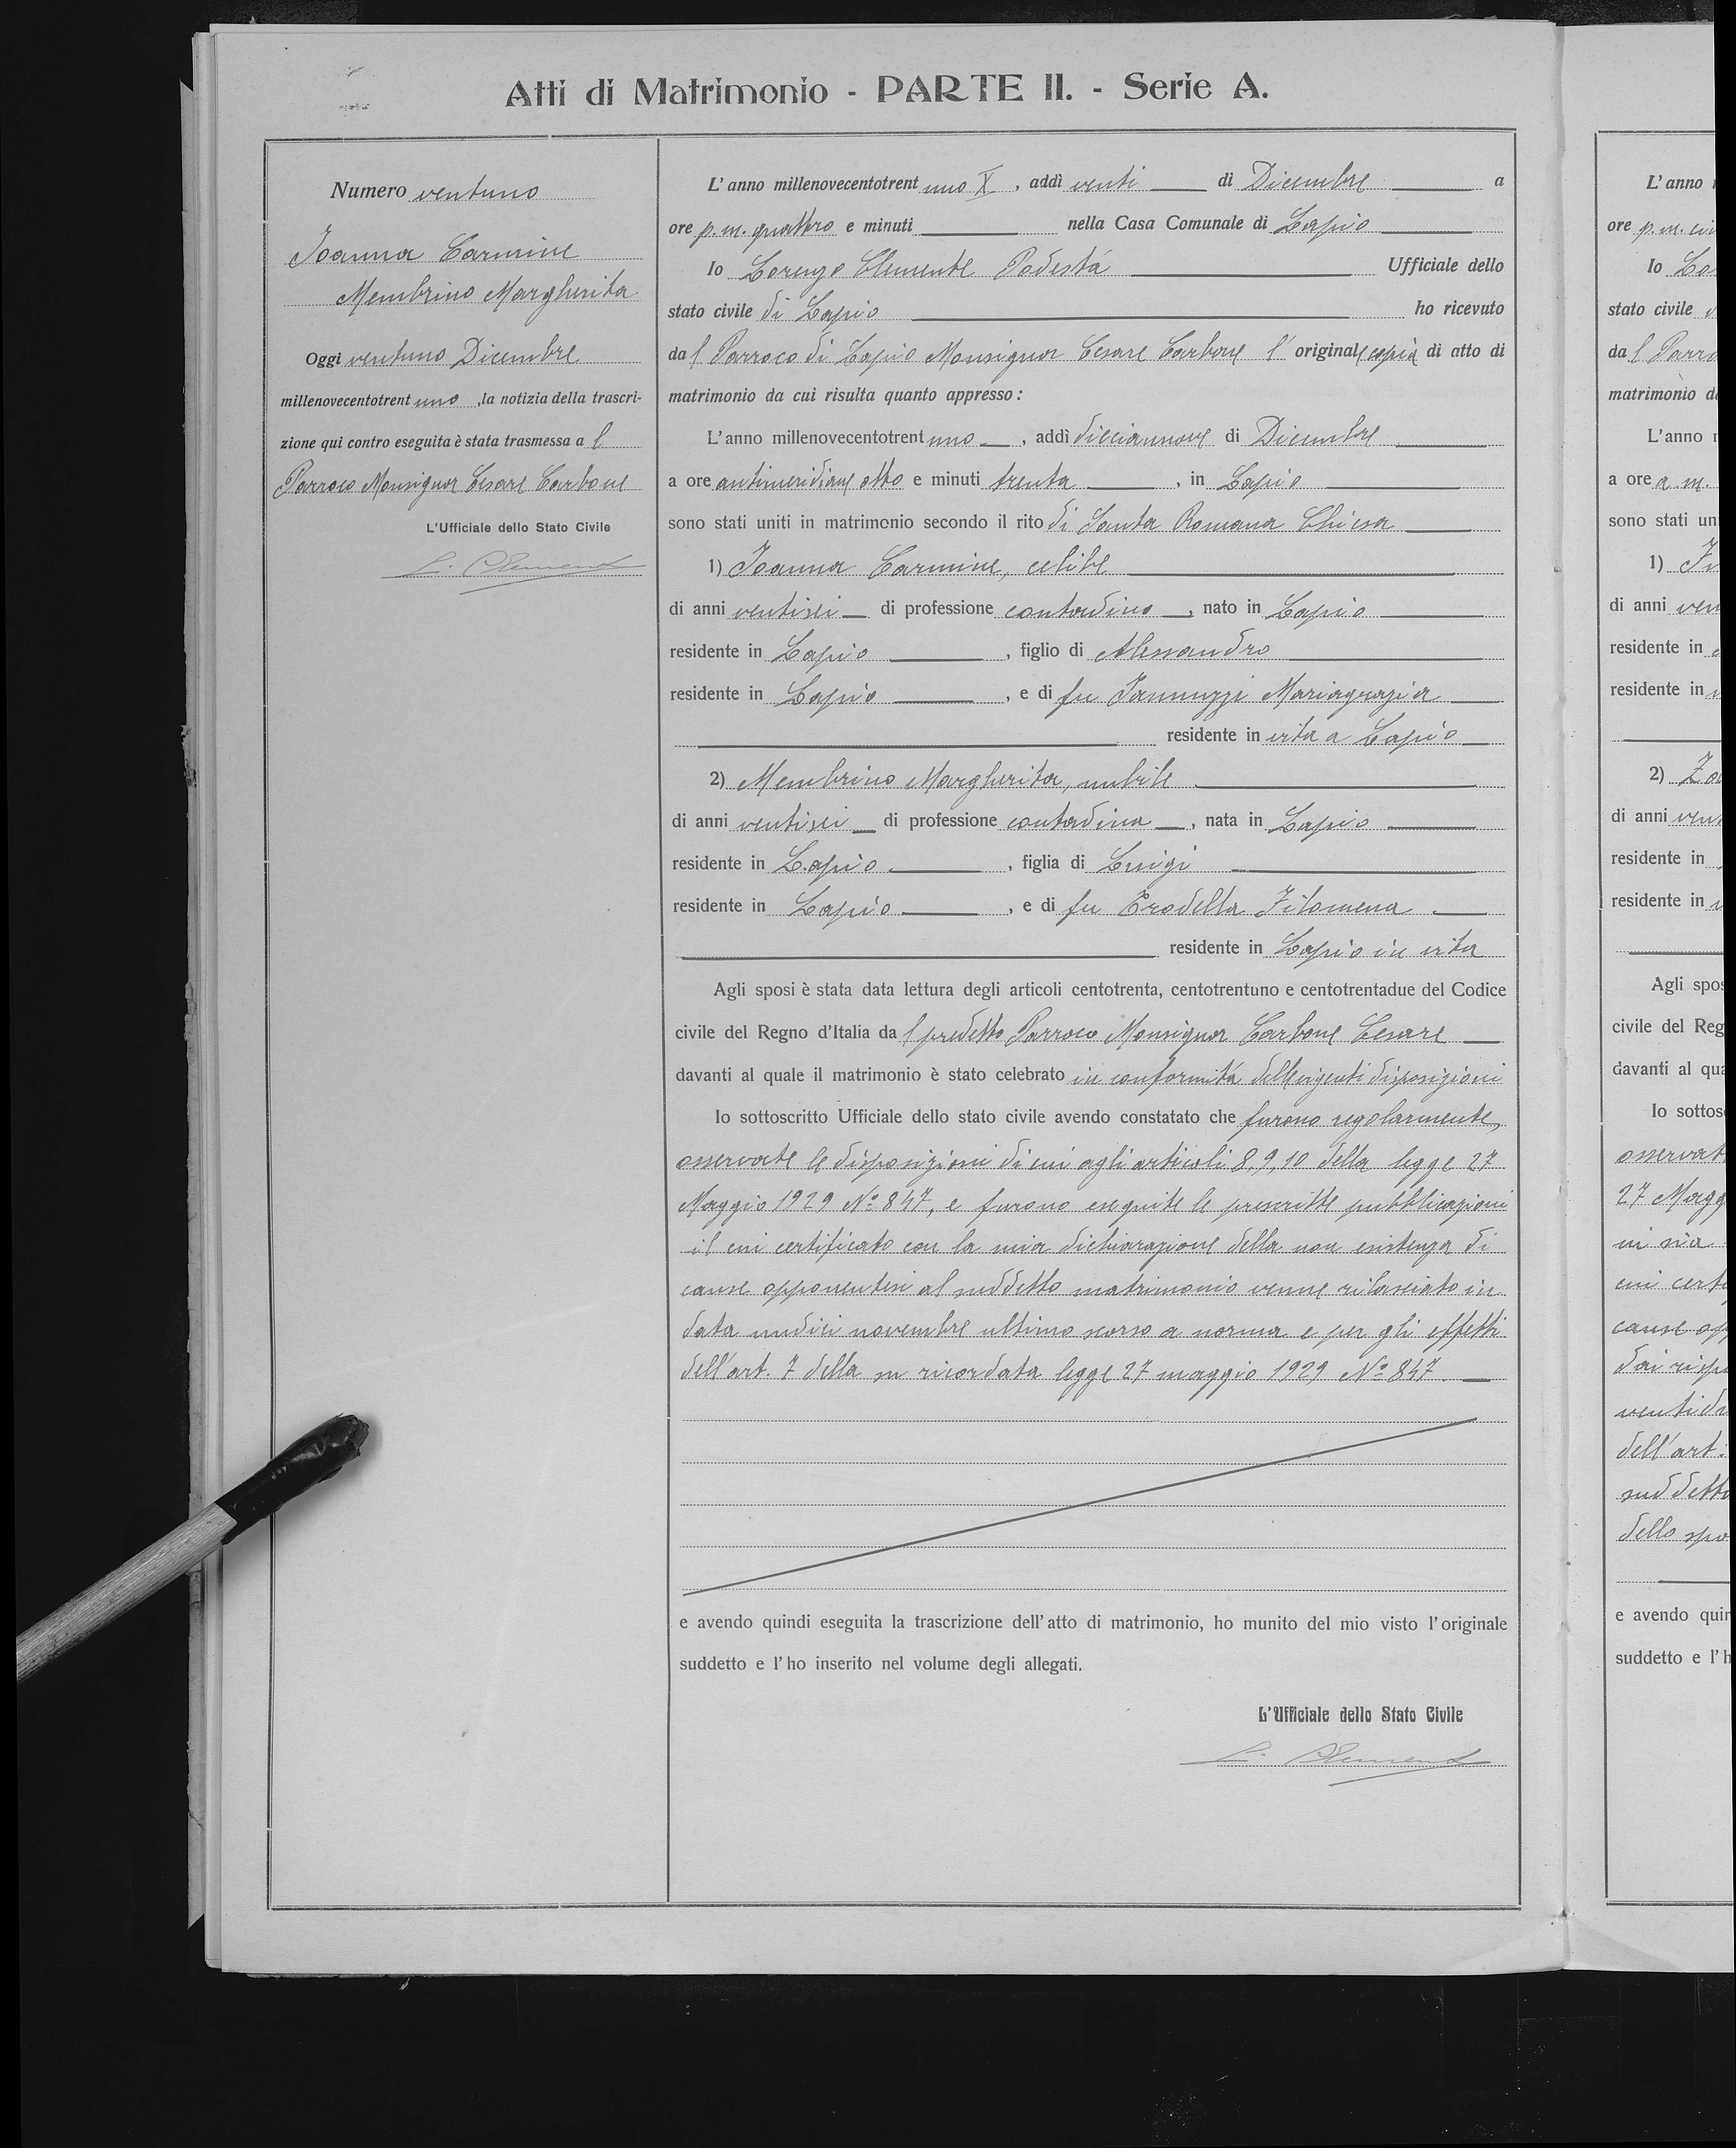 Atti di Matrimonio - PARTE II. - Serie A.
Numero ventuno
Ioanna Carmine
Membrino Margherita
Oggi ventuno Dicembre
millenovecentotrent uno, la notizia della trascri-
zione qui contro eseguita è stata trasmessa a l
Parroco Monsignor Cesare Carbone
L'Ufficiale dello Stato Civile
L. Clemente
L'anno millenovecentotrent uno X, addì venti di Dicembre a
ore p. m. quattro e minuti nella Casa Comunale di Lapio
Io Lorenzo Clemente Podestà Ufficiale dello
stato civile di Lapio ho ricevuto
dal Parroco di Lapio Monsignor Cesare Carbone l'originale copia di atto di
matrimonio da cui risulta quanto appresso:
L'anno millenovecentotrent uno, addì diciannove di Dicembre
a ore antimeridiane otto e minuti trenta, in Lapio
sono stati uniti in matrimonio secondo il rito di Santa Romana Chiesa
1) Ioanna Carmine, celibe
di anni ventisei di professione contadino, nato in Lapio
residente in Lapio, figlio di Alessandro
residente in Lapio, e di fu Iannuzzi Mariagrazia
residente in vita a Lapio
2) Membrino Margherita, nubile
di anni ventisei di professione contadina, nata in Lapio
residente in Lapio, figlia di Luigi
residente in Lapio, e di fu Erodella Filomena
residente in Lapio in vita
Agli sposi è stata data lettura degli articoli centotrenta, centotrentuno e centotrentadue del Codice
civile del Regno d'Italia da l predetto Parroco Monsignor Carbone Cesare
davanti al quale il matrimonio è stato celebrato in conformità delle vigenti disposizioni
Io sottoscritto Ufficiale dello stato civile avendo constatato che furono regolarmente,
osservate le disposizioni di cui agli articoli 8, 9, 10 della legge 27
Maggio 1929 Nº 847, e furono eseguite le prescritte pubblicazioni
il cui certificato con la mia dichiarazione della non esistenza di
cause opponentesi al suddetto matrimonio venne rilasciato in
data undici novembre ultimo scorso a norma e per gli effetti
dell'art. 7 della su ricordata legge 27 maggio 1929 Nº 847.
e avendo quindi eseguita la trascrizione dell'atto di matrimonio, ho munito del mio visto l'originale
suddetto e l'ho inserito nel volume degli allegati.
L'Ufficiale dello Stato Civile
L. Clemente
L'anno
ore p. m.
Io
stato civile
da l
matrimonio
L'anno
a ore a. m.
sono stati
1)
di anni
residente in
residente in
2)
di anni
residente in
residente in
Agli
civile del
davanti al
Io
27
in
cui
cause
dell'art.
dello
e avendo
suddetto e